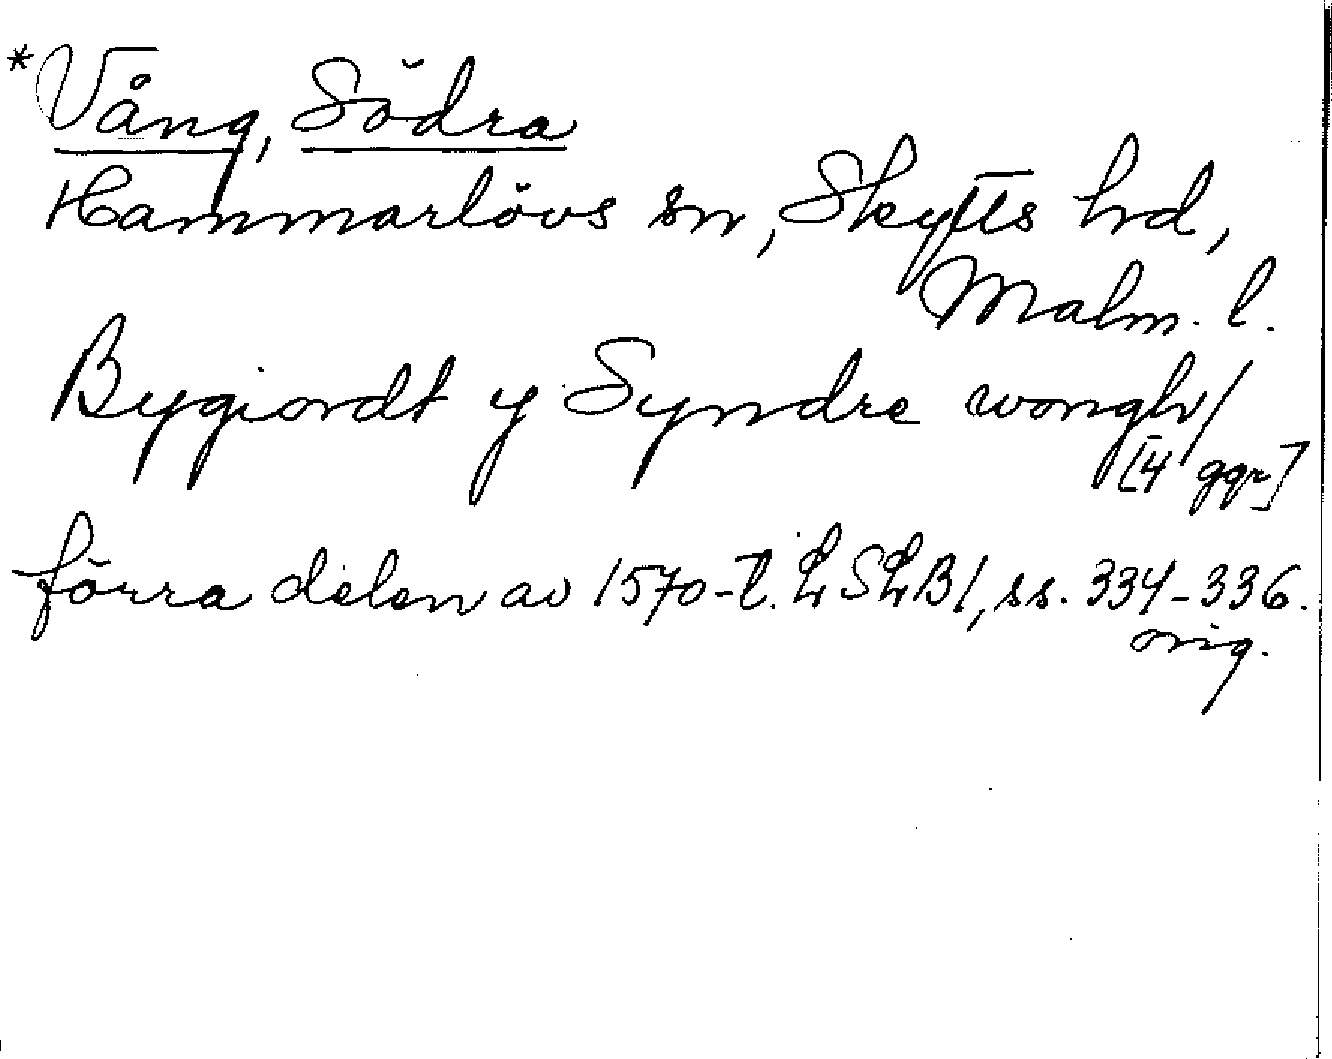 *Vång, Södra
Hammarlövs sn, Skytts hd,
Malm. l.
Bygiordt y Syndre wongh/
[4 ggr]
förra delen av 1570-t. LSLB1, ss. 334-336.
orig.